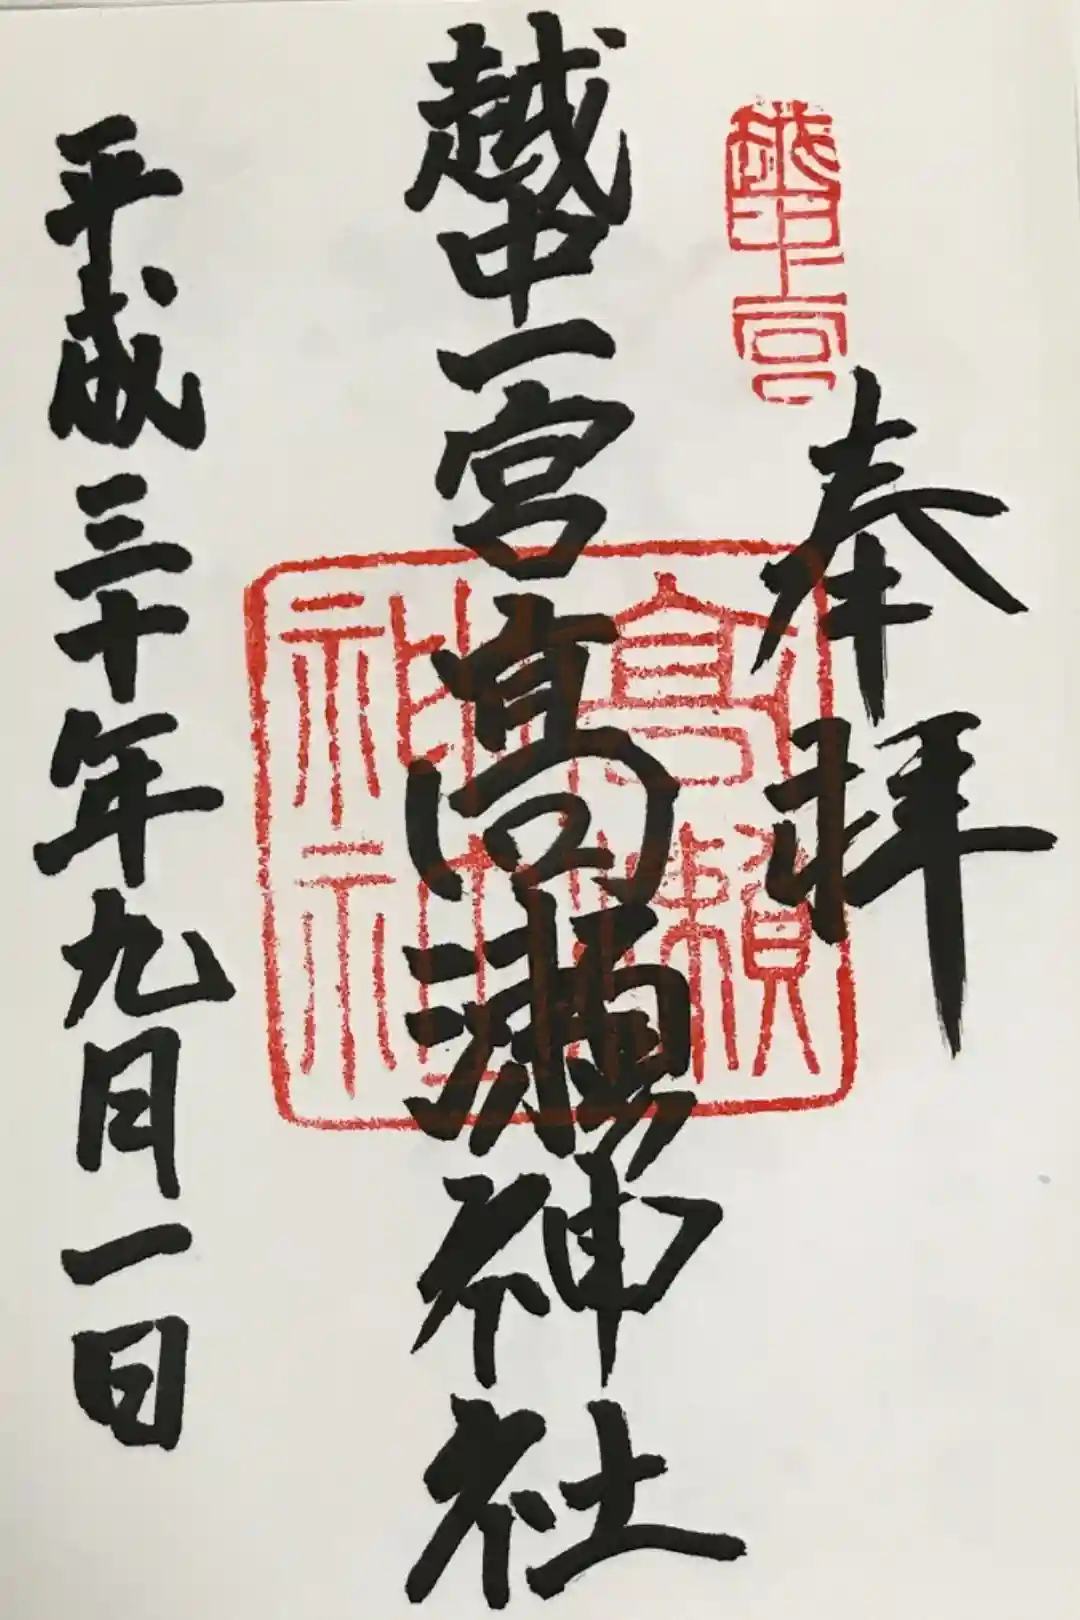 奉拝
越中一宮
越中一宮髙瀬神社
高瀬神社
平成三十年九月一日